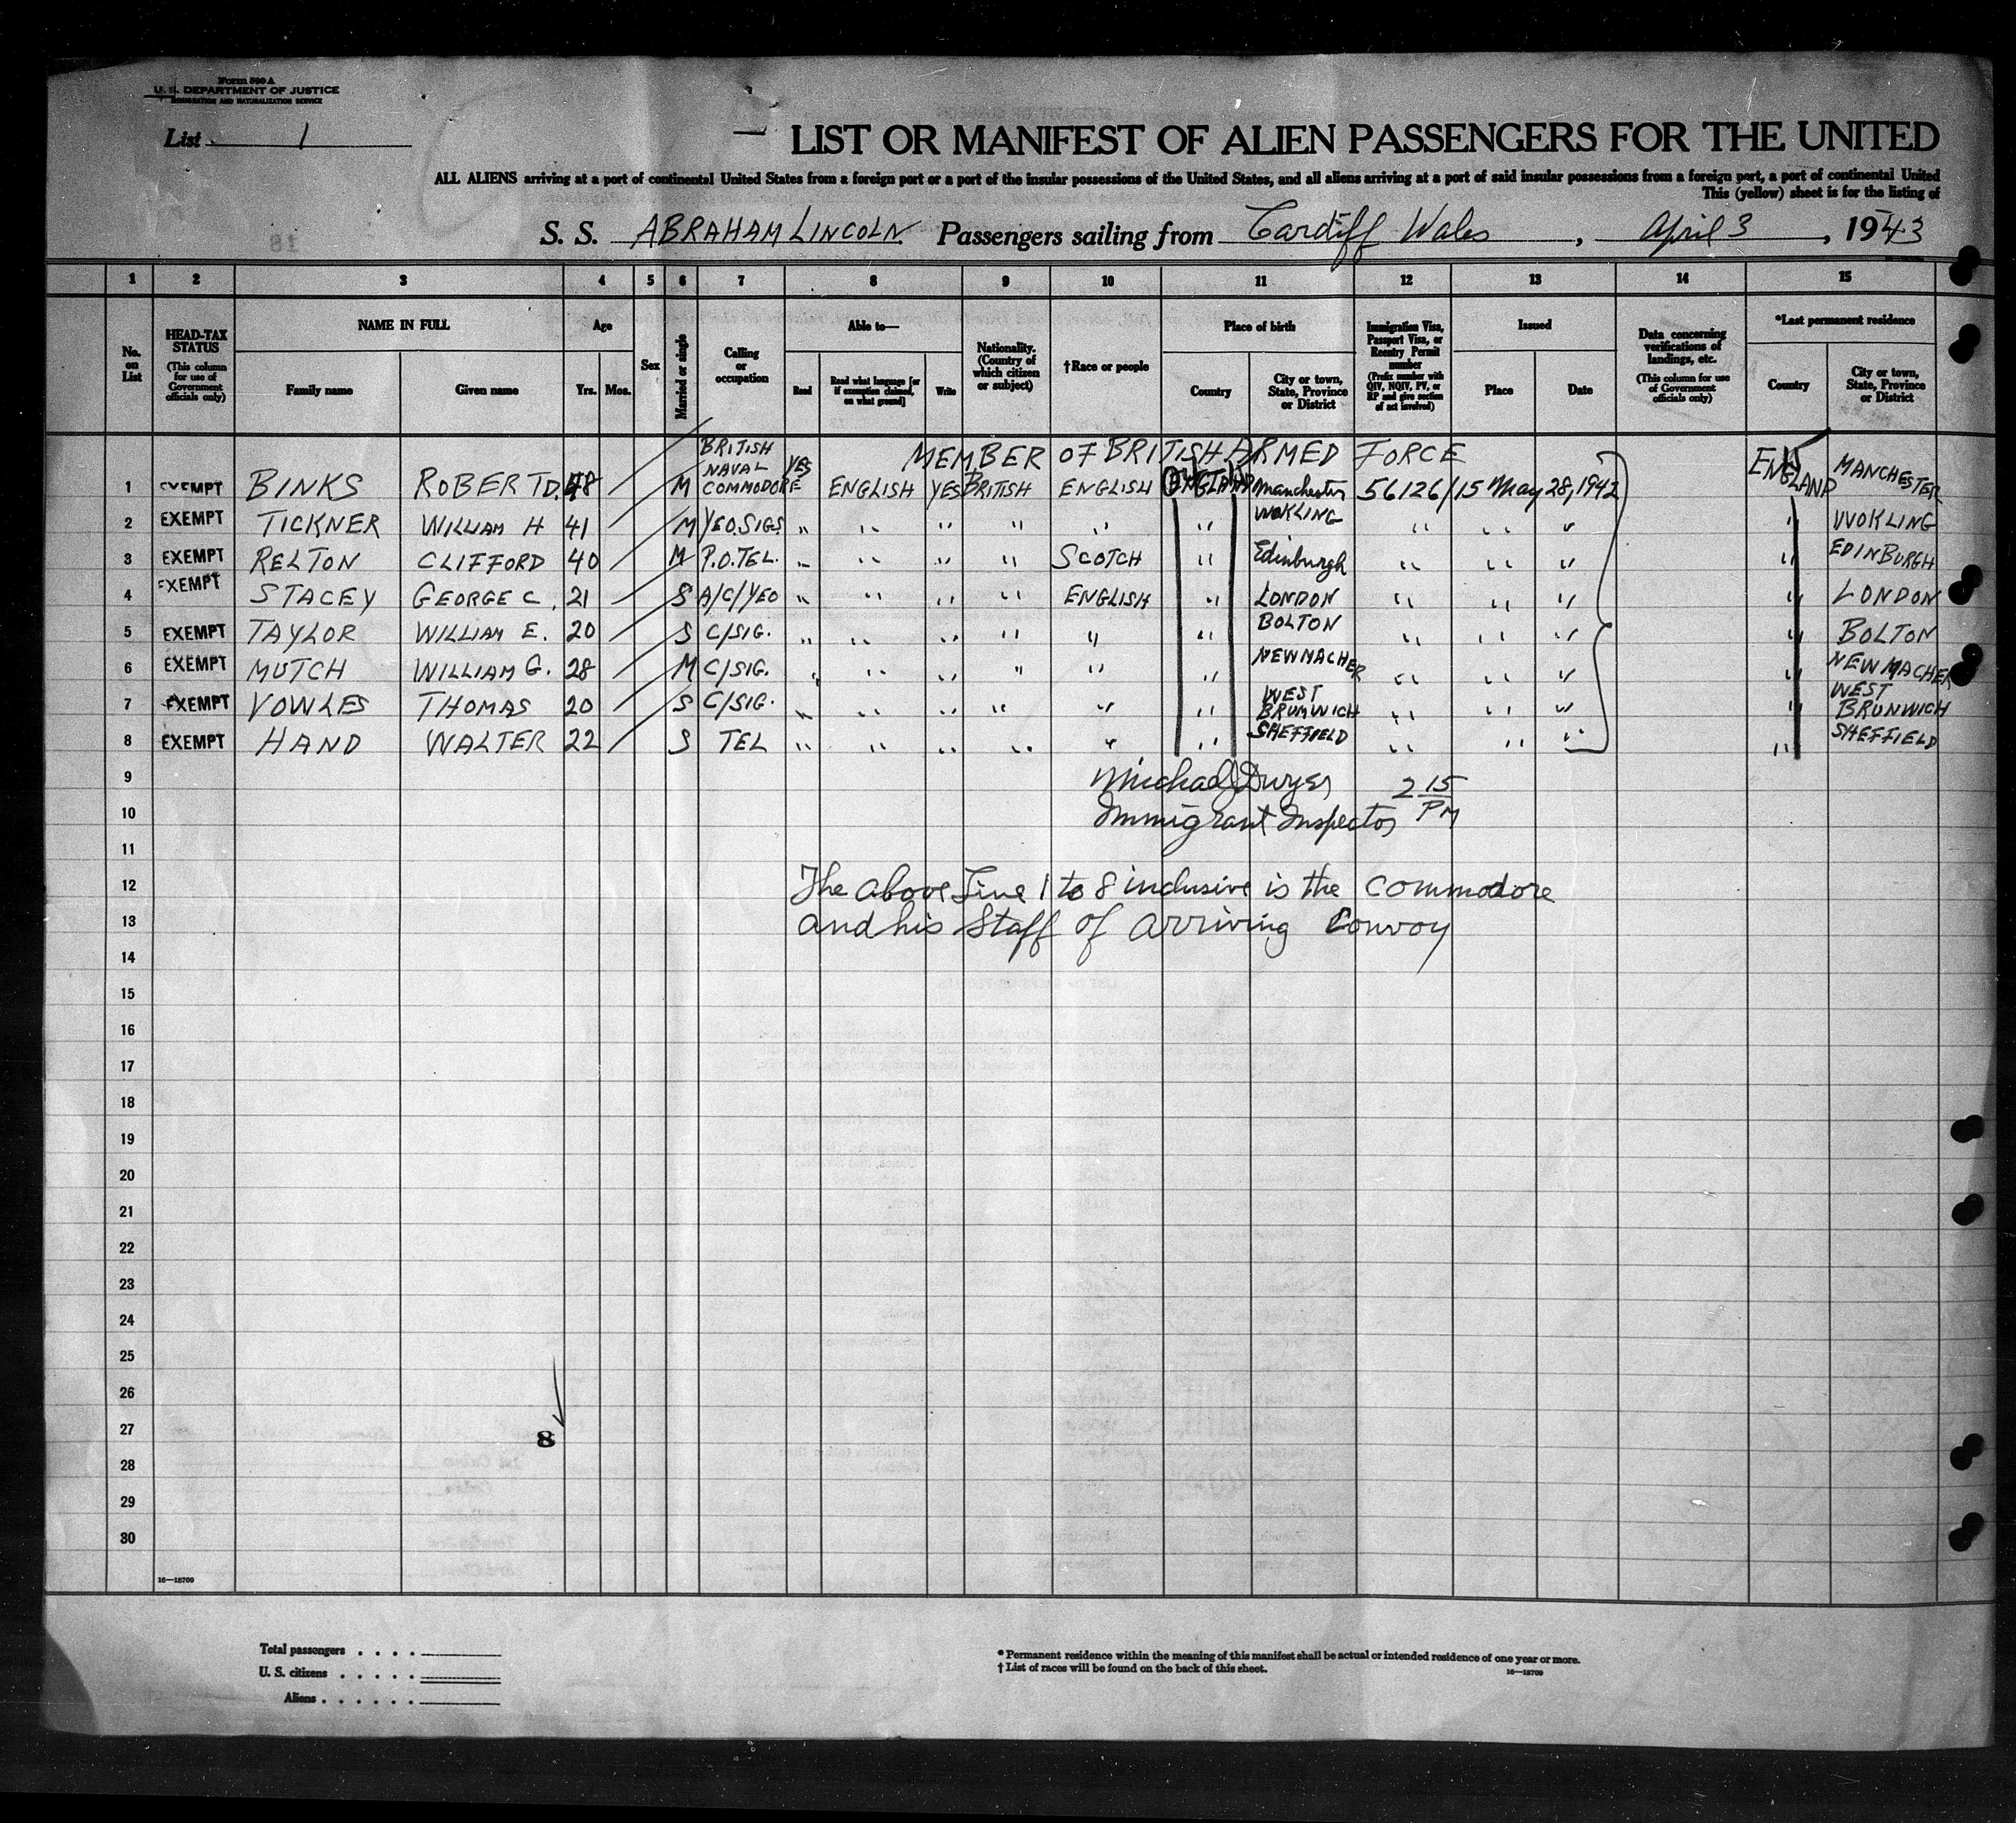 Form 500 A
U. S. DEPARTMENT OF JUSTICE
IMMIGRATION AND NATURALIZATION SERVICE
List 1
LIST OR MANIFEST OF ALIEN PASSENGERS FOR THE UNITED
ALL ALIENS arriving at a port of continental United States from a foreign port or a port of the insular possessions of the United States, and all aliens arriving at a port of said insular possessions from a foreign port, a port of continental United
This (yellow) sheet is for the listing of
S. S. ABRAHAM LINCOLN Passengers sailing from Cardiff Wales, April 3, 1943
1 2 3 4 5 6 7 8 9 10 11 12 13 14 15
No. on List
HEAD-TAX STATUS (This column for use of Government officials only)
NAME IN FULL
Family name Given name
Age
Yrs. Mos.
Sex
Married or single
Calling or occupation
Able to—
Read Read what language [or if exemption claimed, on what ground] Write
Nationality. (Country of which citizen or subject)
†Race or people
Place of birth
Country City or town, State, Province or District
Immigration Visa, Passport Visa, or Reentry Permit number (Prefix number with QIV, NQIV, PV, or RP and give section of act involved)
Issued
Place Date
Data concerning verifications of landings, etc. (This column for use of Government officials only)
*Last permanent residence
Country City or town, State, Province or District
MEMBER OF BRITISH ARMED FORCE
1 EXEMPT BINKS ROBERT D. 48 M BRITISH NAVAL COMMODORE YES ENGLISH YES BRITISH ENGLISH ENGLAND Manchester 56126/15 May 28, 1942 ENGLAND MANCHESTER
2 EXEMPT TICKNER WILLIAM H 41 M YEO.SIGS. " " " " " " WOKLING " " " " WOKLING
3 EXEMPT RELTON CLIFFORD 40 M P.O.TEL. " " " " SCOTCH " Edinburgh " " " " EDINBURGH
4 EXEMPT STACEY GEORGE C. 21 S A/C/YEO " " " " ENGLISH " LONDON " " " " LONDON
5 EXEMPT TAYLOR WILLIAM E. 20 S C/SIG. " " " " " " BOLTON " " " " BOLTON
6 EXEMPT MUTCH WILLIAM G. 28 M C/SIG. " " " " " " NEWMACHER " " " " NEWMACHER
7 EXEMPT VOWLES THOMAS 20 S C/SIG. " " " " " " WEST BRUMWICH " " " " WEST BRUNWICH
8 EXEMPT HAND WALTER 22 S TEL " " " " " " SHEFFIELD " " " " SHEFFIELD
9 Michael J Dwyer 2 15 PM
10 Immigrant Inspector
11
12 The above Line 1 to 8 inclusive is the Commodore
13 and his Staff of arriving Convoy
14
15
16
17
18
19
20
21
22
23
24
25
26
27
8
28
29
30
16—18709
Total passengers . . . .
U. S. citizens . . . . .
Aliens . . . . . .
* Permanent residence within the meaning of this manifest shall be actual or intended residence of one year or more.
† List of races will be found on the back of this sheet.
16—18709